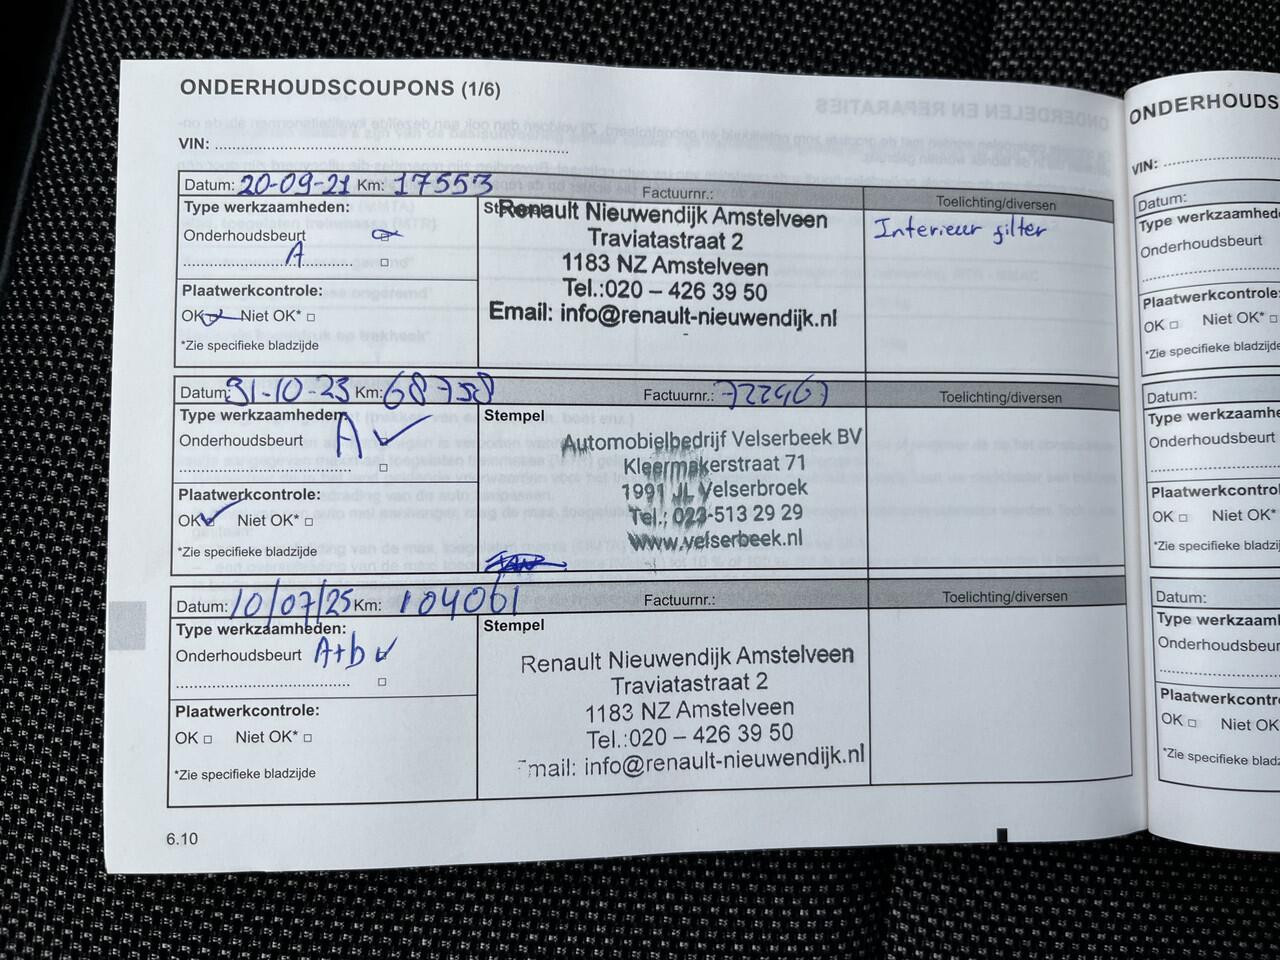 ONDERHOUDSCOUPONS (1/6)
VIN:
Datum: 20-09-21 Km: 17553 Factuurnr.: Toelichting/diversen
Type werkzaamheden:
Onderhoudsbeurt
A
Plaatwerkcontrole:
OK Niet OK*
*Zie specifieke bladzijde
Renault Nieuwendijk Amstelveen
Traviatastraat 2
1183 NZ Amstelveen
Tel.:020 – 426 39 50
Email: info@renault-nieuwendijk.nl
Interieur filter
Datum: 31-10-23 Km: 68758 Factuurnr.: 722467 Toelichting/diversen
Type werkzaamheden
Onderhoudsbeurt A
Plaatwerkcontrole:
OK Niet OK*
*Zie specifieke bladzijde
Stempel
Automobielbedrijf Velserbeek BV
Kleermakerstraat 71
1991 JL Velserbroek
Tel.: 023-513 29 29
www.velserbeek.nl
Datum: 10/07/25 Km: 104061 Factuurnr.: Toelichting/diversen
Type werkzaamheden:
Onderhoudsbeurt A+b
Plaatwerkcontrole:
OK Niet OK*
*Zie specifieke bladzijde
Stempel
Renault Nieuwendijk Amstelveen
Traviatastraat 2
1183 NZ Amstelveen
Tel.:020 – 426 39 50
mail: info@renault-nieuwendijk.nl
6.10
ONDERHOUDS
VIN:
Datum:
Type werkzaamhed
Onderhoudsbeurt
Plaatwerkcontrole:
OK Niet OK*
*Zie specifieke bladzijde
Datum:
Type werkzaamhe
Onderhoudsbeurt
Plaatwerkcontrol
OK Niet OK*
*Zie specifieke bladzij
Datum:
Type werkzaaml
Onderhoudsbeur
Plaatwerkcontro
OK Niet OK
*Zie specifieke bladz